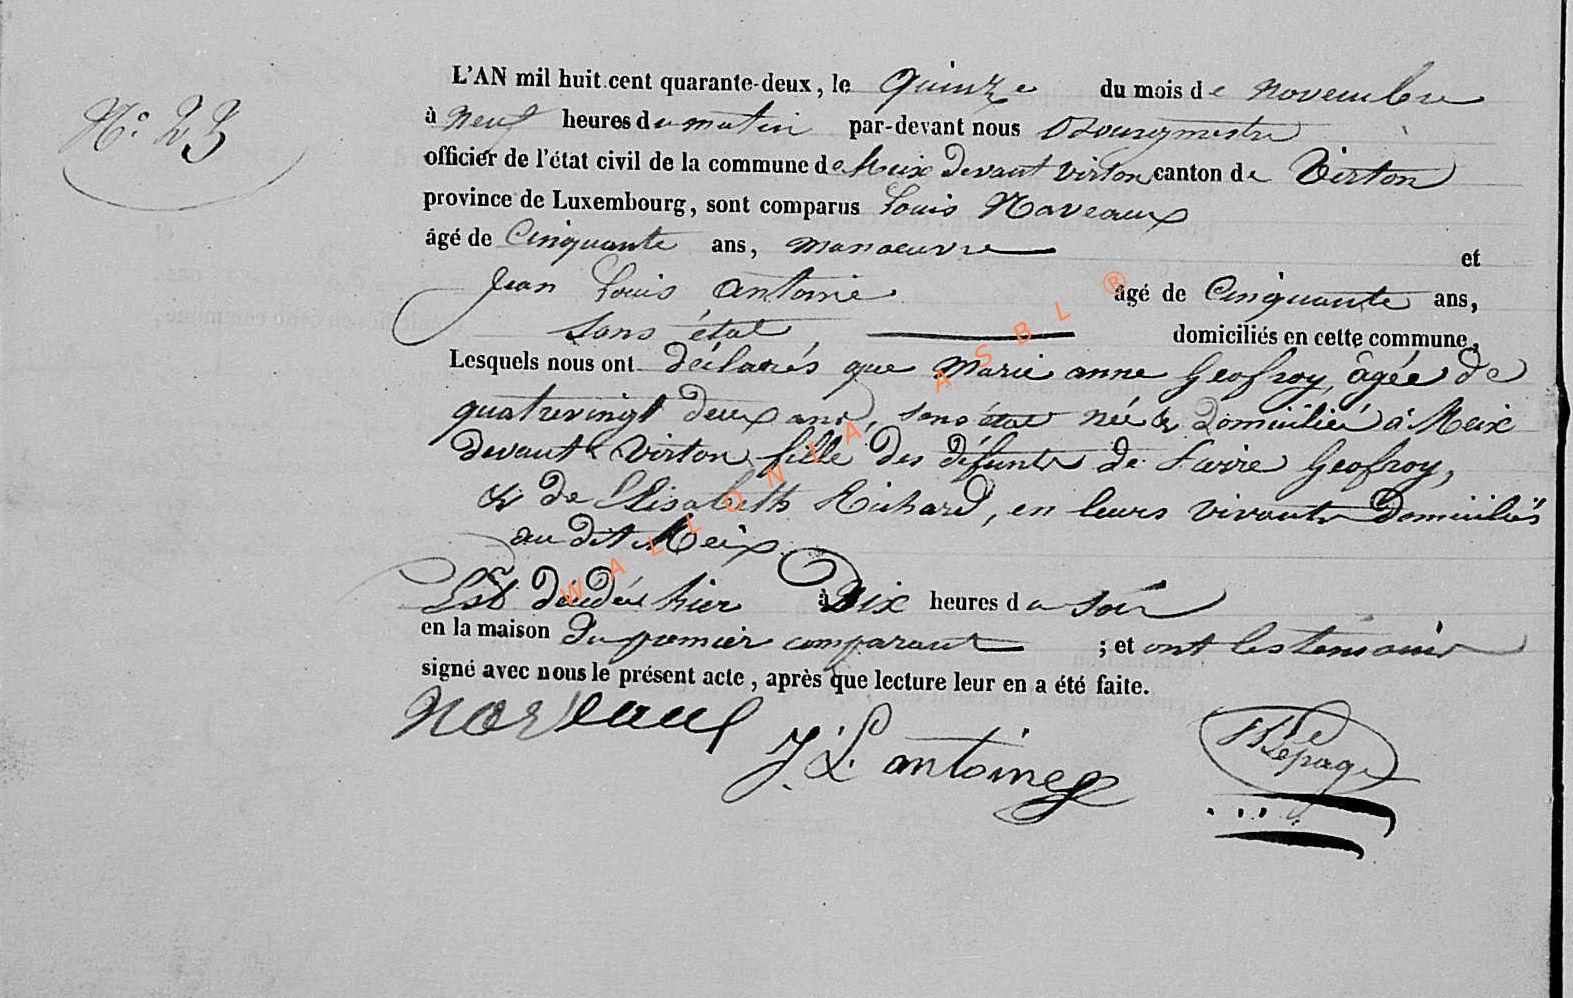 N.° 23
L'AN mil huit cent quarante-deux, le Quinze du mois de Novembre
à Neuf heures du matin par-devant nous Bourgmestre
officier de l'état civil de la commune de Meix devant Virton canton de Virton
province de Luxembourg, sont comparus Louis Naveaux
âgé de Cinquante ans, manoeuvre et
Jean Louis Antoine âgé de Cinquante ans,
sans état domiciliés en cette commune,
Lesquels nous ont déclarés que Marie anne Geofroy, âgée de
quatrevingt deux ans, sans état née & Domiciliée à Meix
devant Virton fille des défunts de Pierre Geofroy,
& de Elisabeth Richard, en leurs vivants Domiciliés
au dit Meix.
Est décédée hier à Dix heures du soir
en la maison du premier comparant ; et ont les témoins
signé avec nous le présent acte, après que lecture leur en a été faite.
J. L. antoine
Lepage
WALLONIA ASBL ®